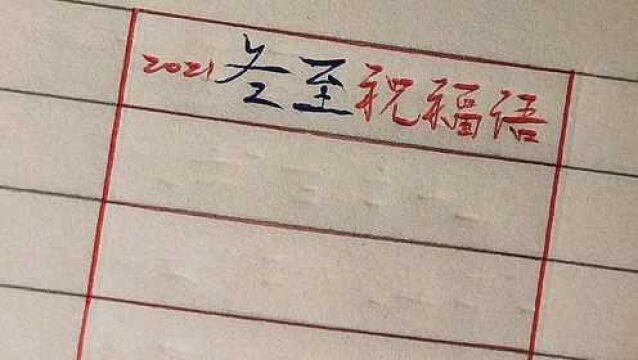 2021冬至祝福语